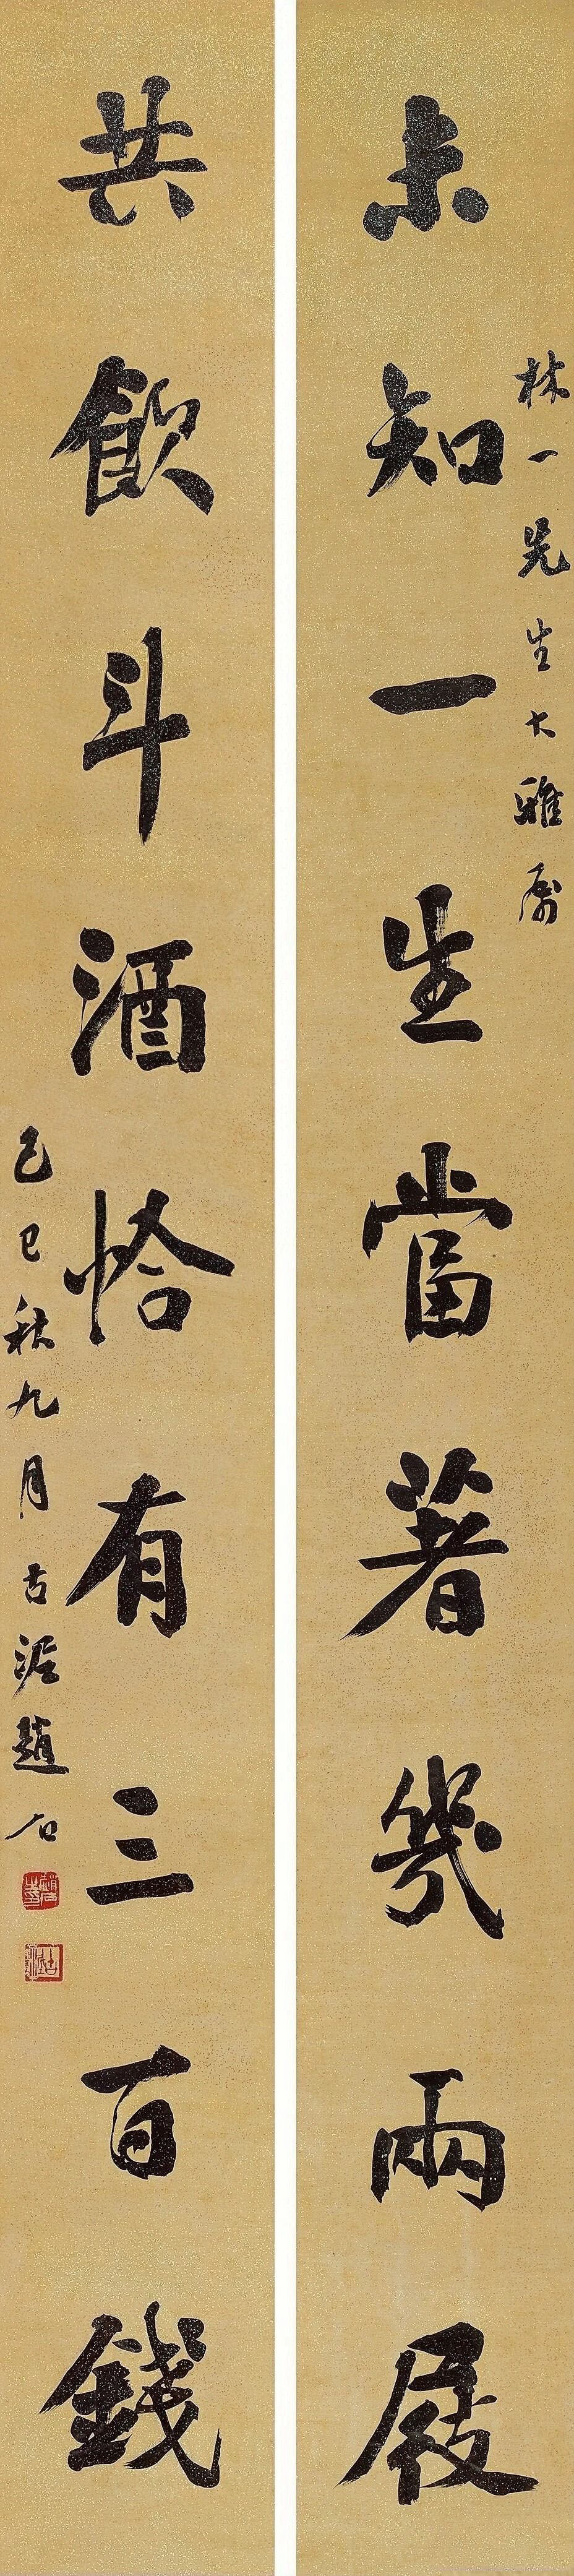 林一先生大雅屬
未知一生當著幾兩屐
共飲斗酒恰有三百錢
己巳秋九月古泥趙石